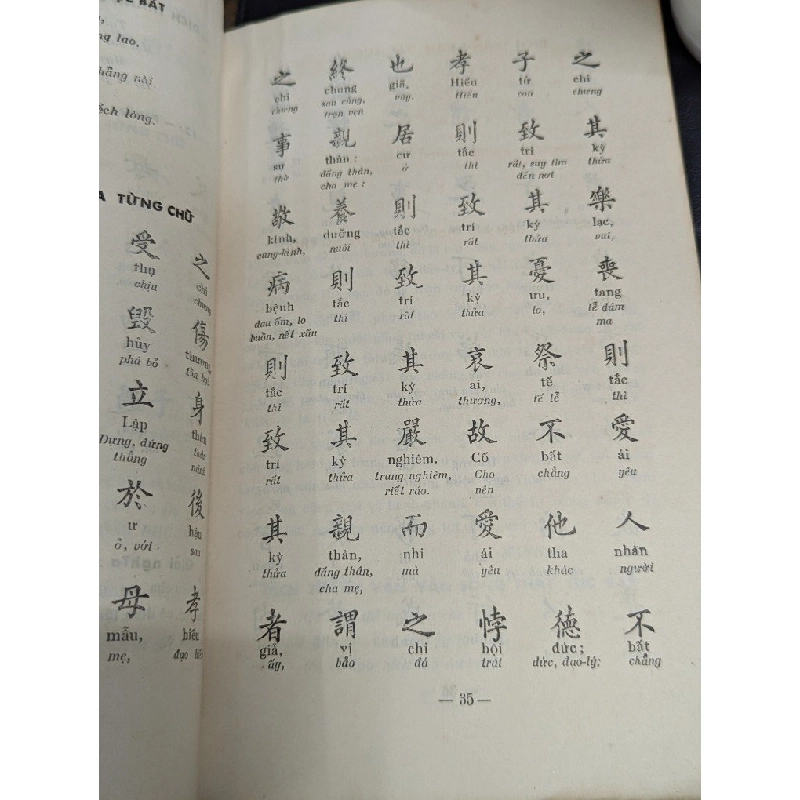 BẤT
DỊCH
lao.
chẳng nói
lòng.
TỪNG CHỮ
受 之
thụ chi
chịu chưng
毀 傷
hủy thương
phá bỏ
立 身
Lập thân
Dựng, đứng
thẳng
於 後
ư hậu
ở, với sau
母 孝
mẫu, hiếu
mẹ,
之 終 也 孝 子 之
chi chung giã, Hiếu tử chi
chưng sau cùng, vậy. Hiền con chưng
trọn vẹn
事 親 居 則 致 其
sự thân : cư tắc trí kỳ
thờ đấng thân, ở thì rất, suy tìm thửa
cha mẹ : đến nơi
敬 養 則 致 其 樂
kính, dưỡng tắc trí kỳ lạc,
cung-kính, nuôi thì rất thửa vui,
病 則 致 其 憂 喪
bệnh tắc trí kỳ ưu, tang
đau ốm, lo thì rất thửa lo, lễ đám
buồn, nết xấu ma
則 致 其 哀 祭 則
tắc trí kỳ ai, tế tắc
thì rất thửa thương, tế lễ thì
致 其 嚴 故 不 愛
trí kỳ nghiêm. Cố bất ái
rất thửa trang nghiêm, Cho chẳng yêu
riết ráo. nên
其 親 而 愛 他 人
kỳ thân, nhi ái tha nhân
thửa đấng thân, mà yêu khác người
cha mẹ,
者 謂 之 悖 德 不
giả, vị chi bội đức ; bất
ấy, bảo đá trái đức, đạo-lý; chẳng
— 35 —